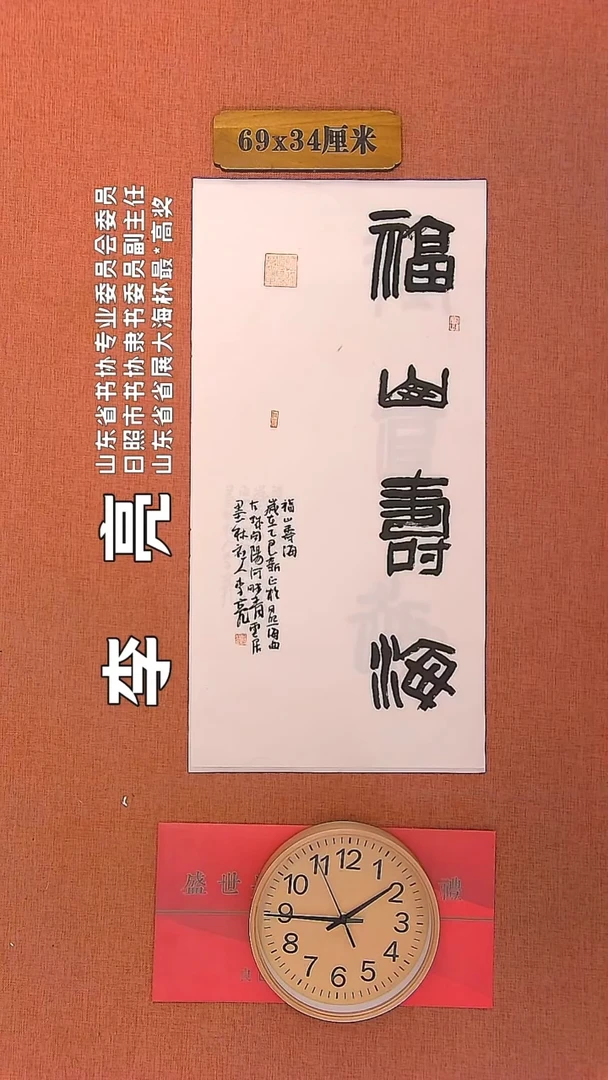 69x34厘米
山东省书协专业委员会委员
日照市书协隶书委员副主任
山东省省展大海杯最*高奖
李亮
福山壽海
福山壽海
歲在乙巳新正於日照海曲
墨林社人李亮
盛世
禮
12
1
2
3
4
5
6
7
8
9
10
11